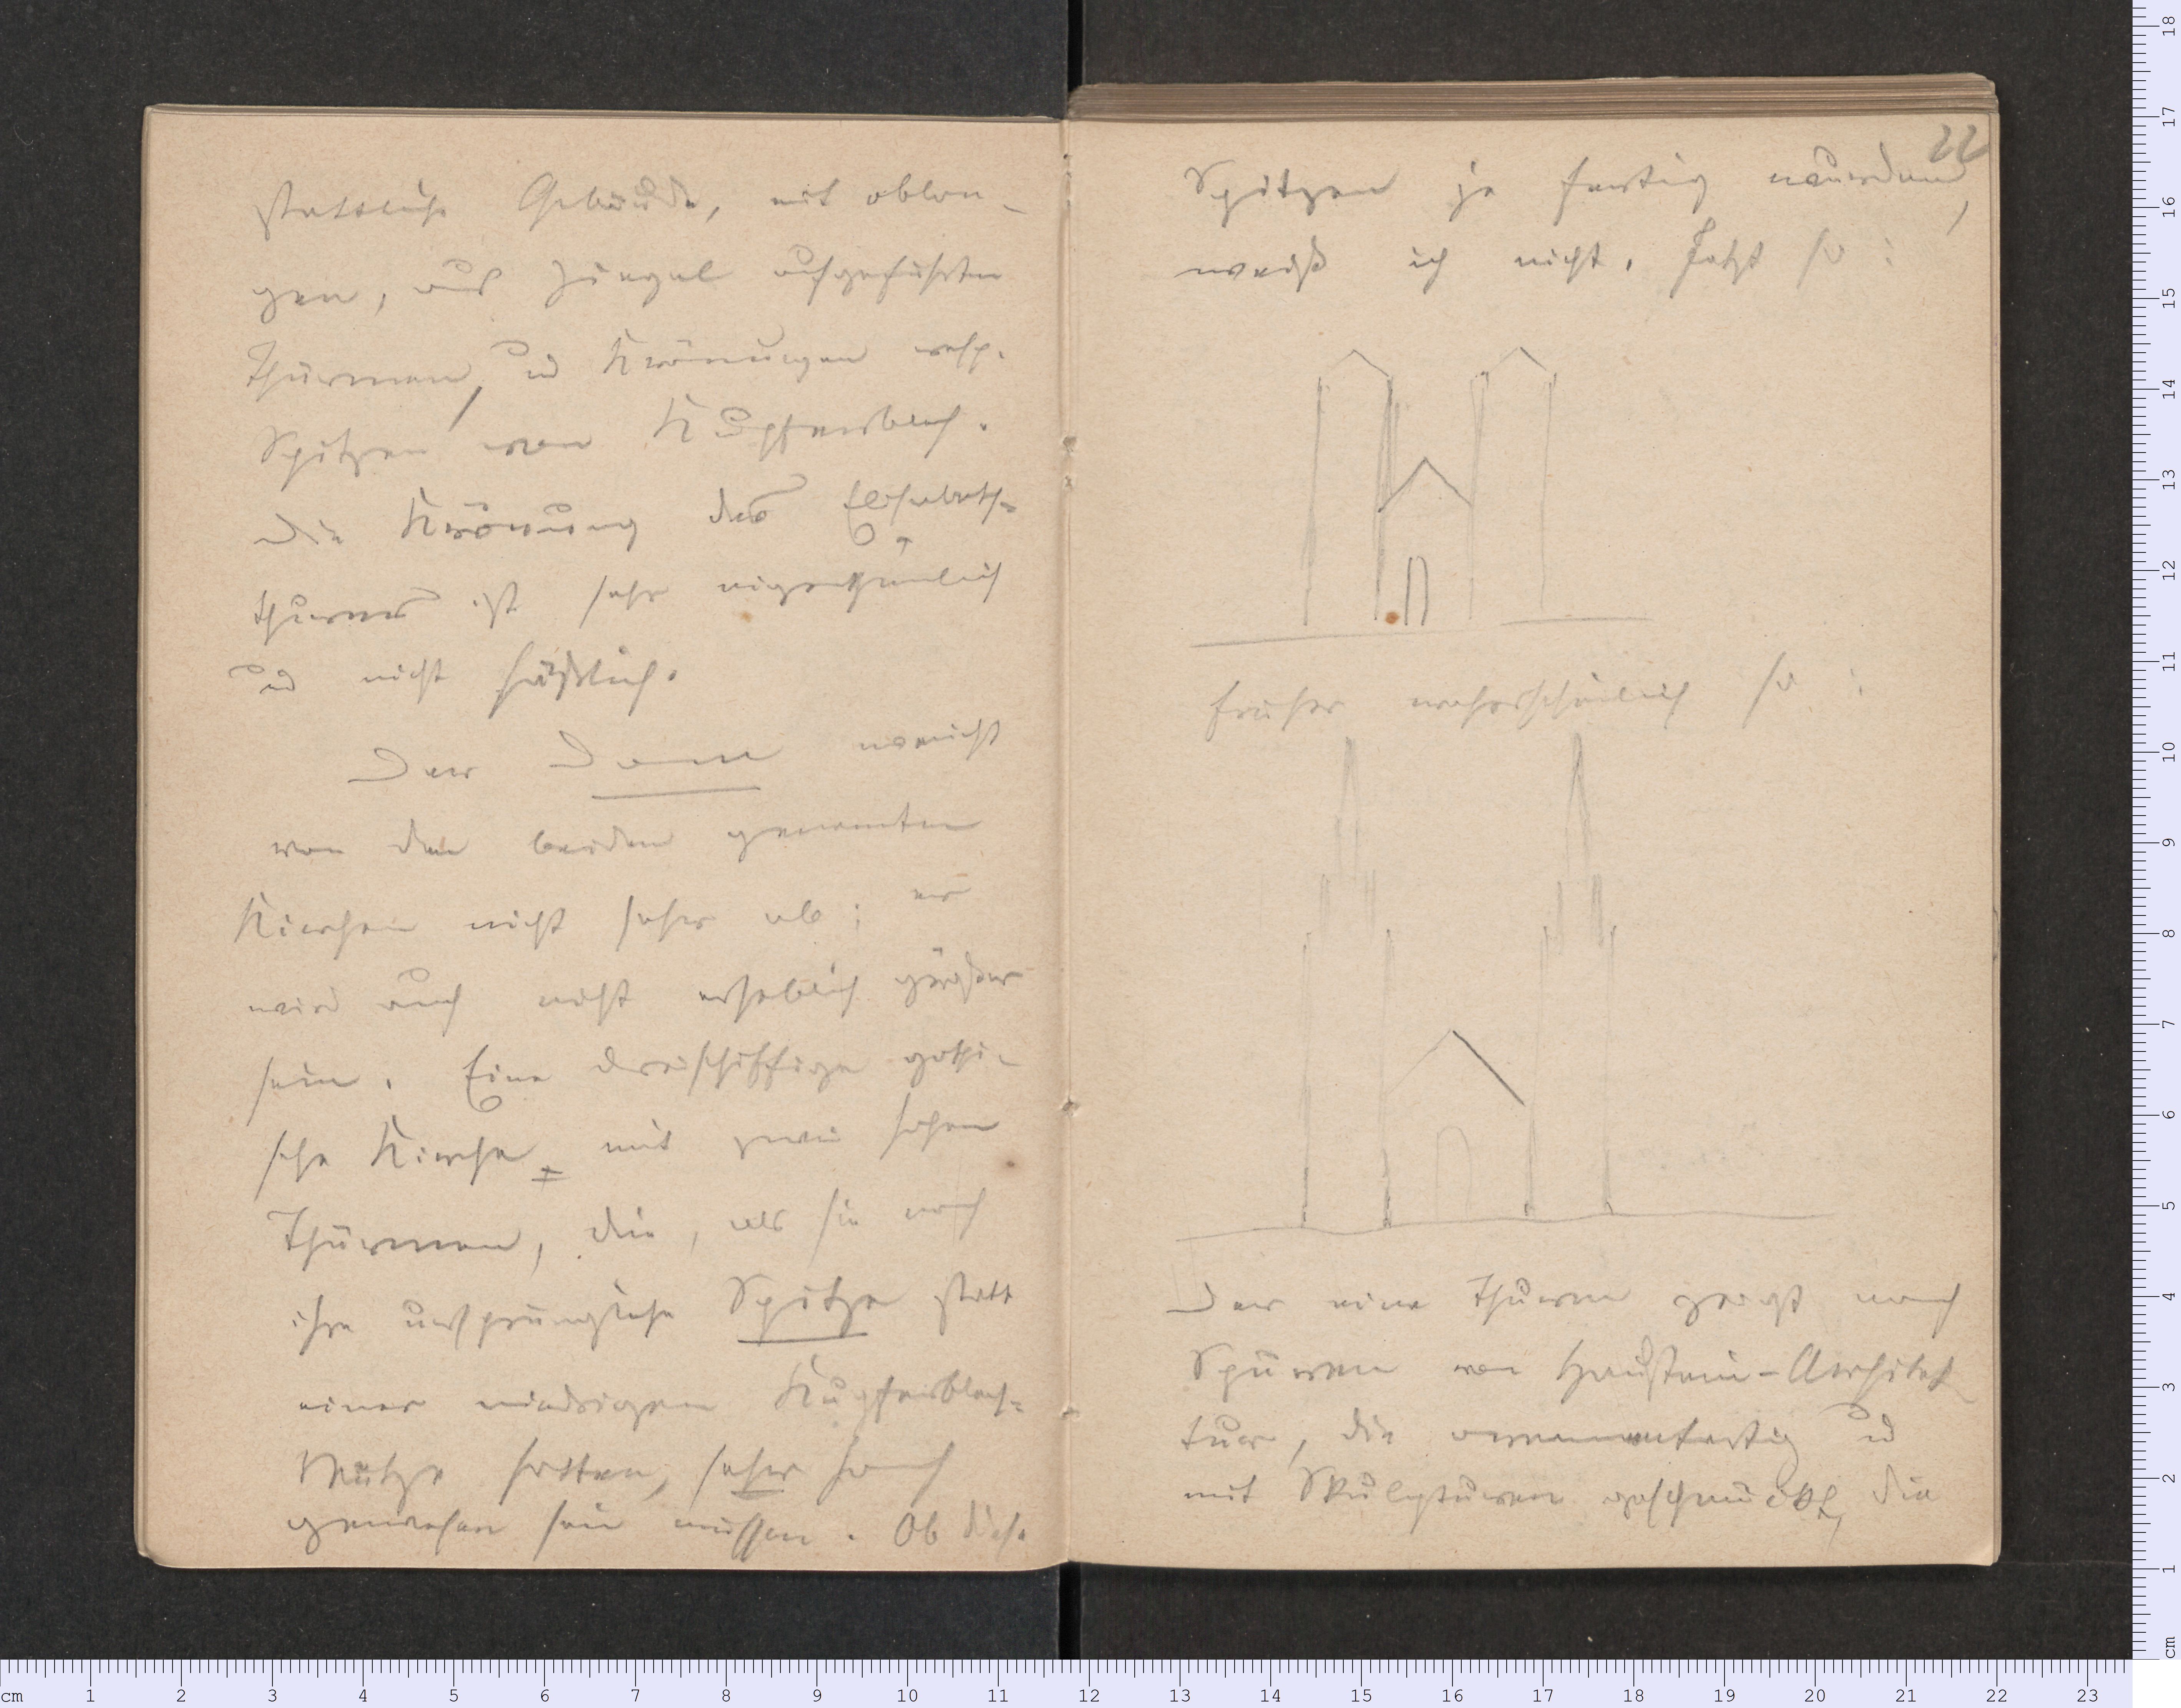 stattliche Gebäude, mit oblon-
gen, aus Ziegel aufgeführten
Thürmen, und Krönungen resp.
Spitzen von Kupferblech.
Die Krönung des Elisabeth-
thurms ist sehr eigenthümlich
und nicht häßlich.
Der Dom weicht
von den beiden genannten
Kirchen nicht sehr ab; er
wird auch nicht erheblich größer
sein. Eine dreischiffige gothi-
sche Kirche, mit zwei hohen
Thürmen, die, als sie noch
ihre ursprüngliche Spitze statt
einer niedrigen Kupferblech-
Mütze hatten, sehr hoch
gewesen sein müssen. Ob diese
22
Spitzen je fertig wurden,
weiß ich nicht. Jetzt so:
früher wahrscheinlich so:
Der eine Thurm zeigt noch
Spuren von Haustein-Architek-
tur, die ornamentartig und
mit Skulpturen geschmückt, die